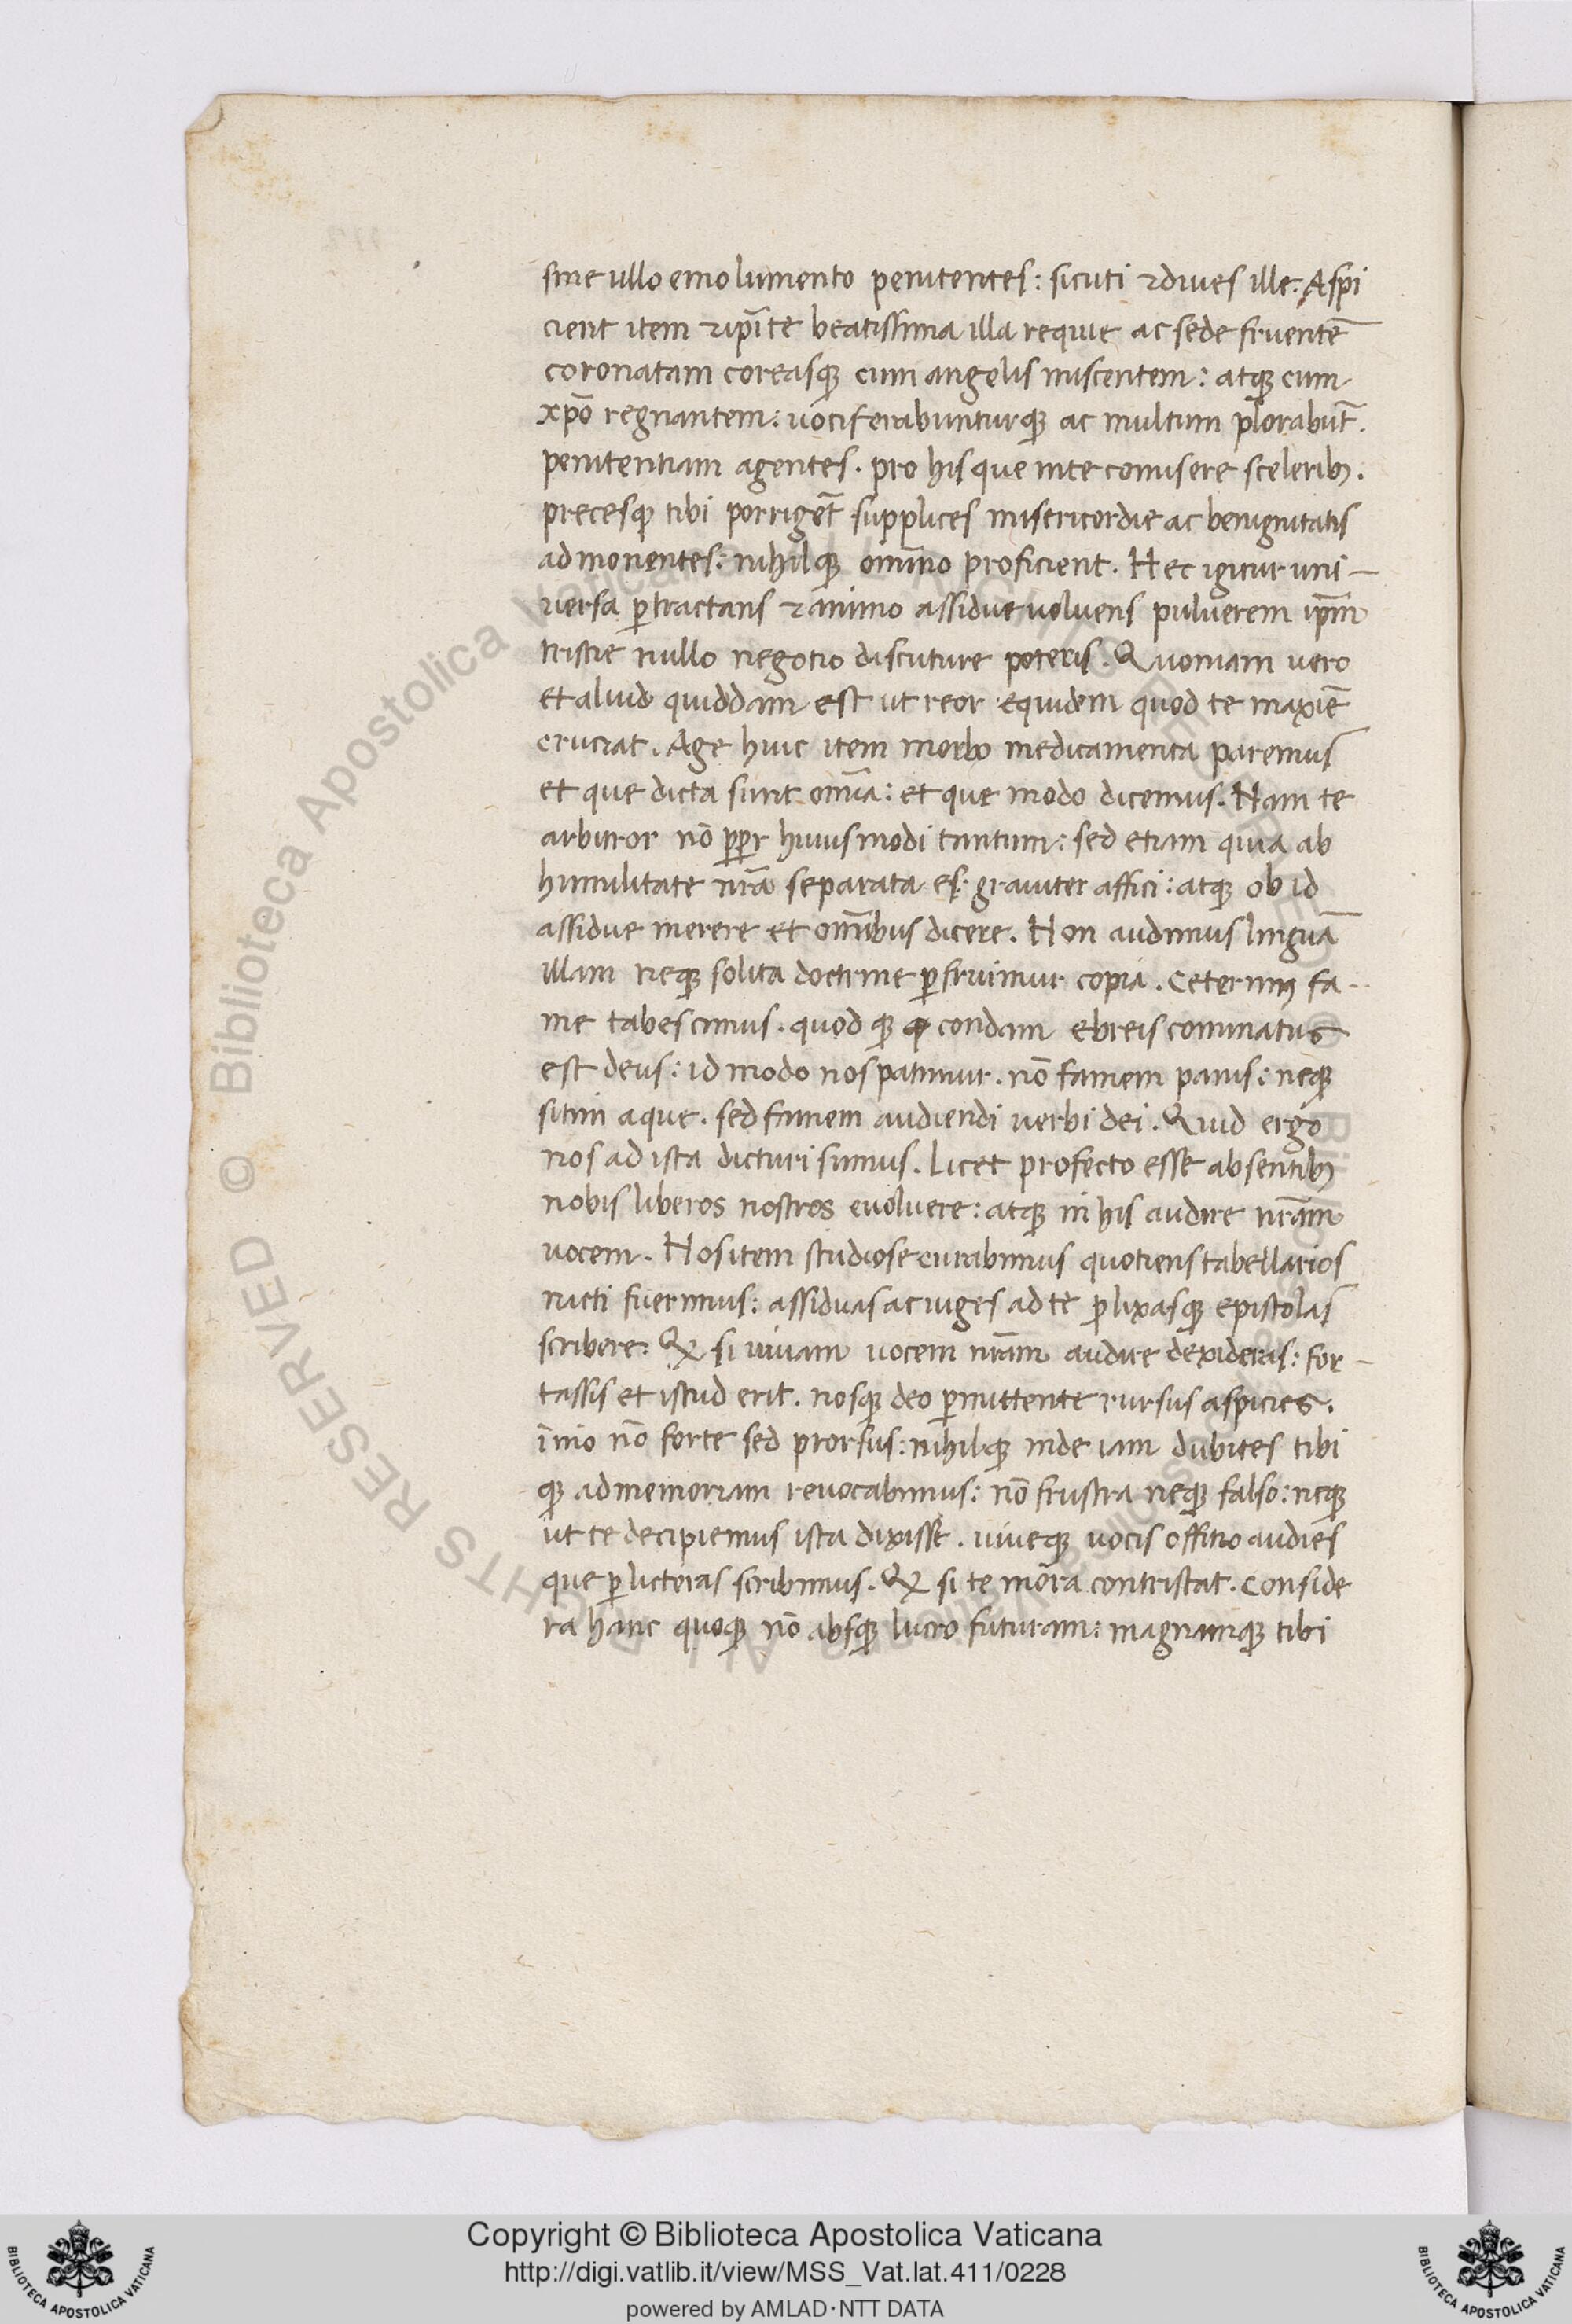 sine ullo emolumento penitentes: sicuti ⁊ diues ille: Aspi
cient item ⁊ ip̄i te beatissima illa requie ac sede fruentē
coronatam coreasqꝫ cum angelis miscentem: atqꝫ cum
xp̄o regnantem: uociferabunturqꝫ ac multum plorabūt.
penitentiam agentes. pro his que in te comisere sceleribꝫ.
precesqꝫ tibi porrigēt supplices misericordie ac benignitatis
admonentes: nihilqꝫ om̄ino proficient. Hec igitur uni-
uersa ꝑtractans ⁊ animo assidue uoluens puluerem ip̄m
tristie nullo negotio discuture poteris. Quoniam uero
et aliud quiddam est ut reor equidem quod te maxiē
cruciat. Age huic item morbo medicamenta paremus
et que dicta sunt om̄ia: et que modo dicemus. Nam te
arbitror nō ꝓpr huiusmodi tantum: sed etiam quia ab
humilitate nr̄a separata es: grauiter affici: atqꝫ ob id
assidue merere et om̄ibus dicere. Non audimus linguā
illam neqꝫ solita doctrine ꝑfruimur copia. Ceterum fa-
me tabescimus. quod qꝫ condam ebreis comminatus
est deus: id modo nos patimur. nō famem panis: neqꝫ
sitim aque. sed famem audiendi uerbi dei. Quid ergo
nos ad ista dicturi sumus. Licet profecto esse absentibꝫ
nobis liberos nostros euoluere: atqꝫ in his audire nr̄am
uocem. Nos item studiose curabimus quotiens tabellarios
nacti fuerimus: assiduas ac iuges ad te ꝓlixasqꝫ epistolas
scribere: Qꝫ si uiuam uocem nr̄am audire dexideras: for-
tassis et istud erit. nosqꝫ deo ꝑmittente rursus aspicies.
īmo nō forte sed prorsus: nihilqꝫ inde iam dubites tibi
qꝫ ad memoriam reuocabimus: nō frustra neqꝫ falso: neqꝫ
ut te decipiemus ista dixisse. uiueqꝫ uocis offitio audies
que ꝑ licteras scribimus. Qꝫ si te mora contristat. Conside
ra hanc quoqꝫ nō absqꝫ lucro futuram: magnamqꝫ tibi
Copyright © Biblioteca Apostolica Vaticana
http://digi.vatlib.it/view/MSS_Vat.lat.411/0228
powered by AMLAD·NTT DATA